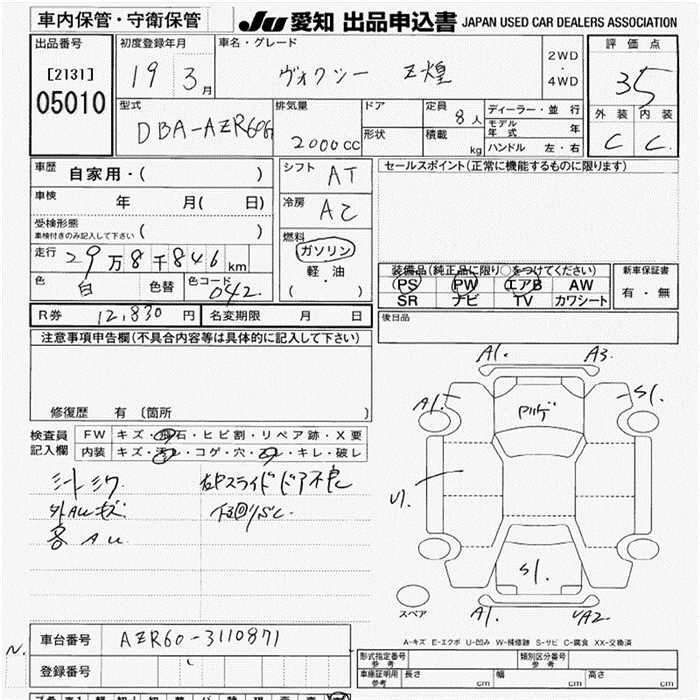 車内保管・守衛保管
JU 愛知 出品申込書 JAPAN USED CAR DEALERS ASSOCIATION
出品番号
[2131]
05010
初度登録年月
19 3月
車名・グレード
ヴォクシー Z煌
2WD
・
4WD
評価点
35
外装 内装
C C
型式
DBA-AZR60G
排気量
2000cc
ドア
形状
定員 8人
積載 kg
ディーラー・並行
モデル年式 年
ハンドル 左・右
車歴 自家用・( )
車検 年 月( 日)
受検形態
車検付きのみ記入して下さい ( )
走行 29万8千846km
色 白 色替 色コード 042
シフト AT
冷房 AC
燃料
ガソリン
軽・油
( )
セールスポイント(正常に機能するものに限ります)
装備品(純正品に限り○をつけてください)
PS PW エアB AW
SR ナビ TV カワシート
新車保証書
有・無
R券 12,830円 名変期限 月 日
後日品
注意事項申告欄(不具合内容等は具体的に記入して下さい)
修復歴 有 〔箇所 〕
検査員
記入欄
FW キズ・飛石・ヒビ割・リペア跡・X要
内装 キズ・汚レ・コゲ・穴・スレ・キレ・破レ
スライドドア不良
A1. A3.
A1. S1.
U1.
S1.
A1. UA2.
スペア
A-キズ E-エクボ U-凹み W-補修跡 S-サビ C-腐食 XX-交換済
車台番号 AZR60-3110871
登録番号
形式指定番号
参考
類別区分番号
参考
車庫証明用
参考
長さ cm 幅 cm 高さ cm